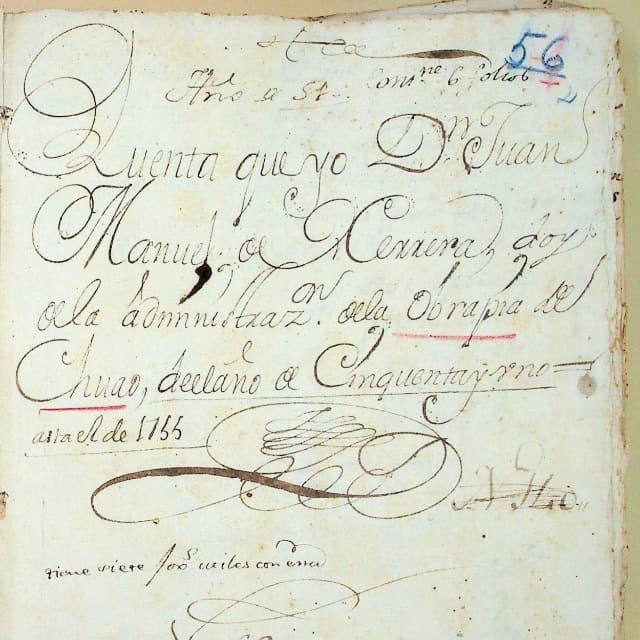 56
2
Año a 51 Contne 6 folios
Quenta que yo Dn. Juan
Manuel de Herrera, doy
de la administrazn. de la Obrapia de
Chuao, de el año de Cinquenta y uno
asta el de 1755
tiene siete